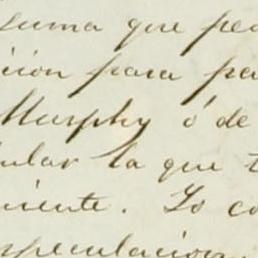 suma que pe
icion para pa
Murphy ó de
ular la que t
niente. Lo co
speculacion